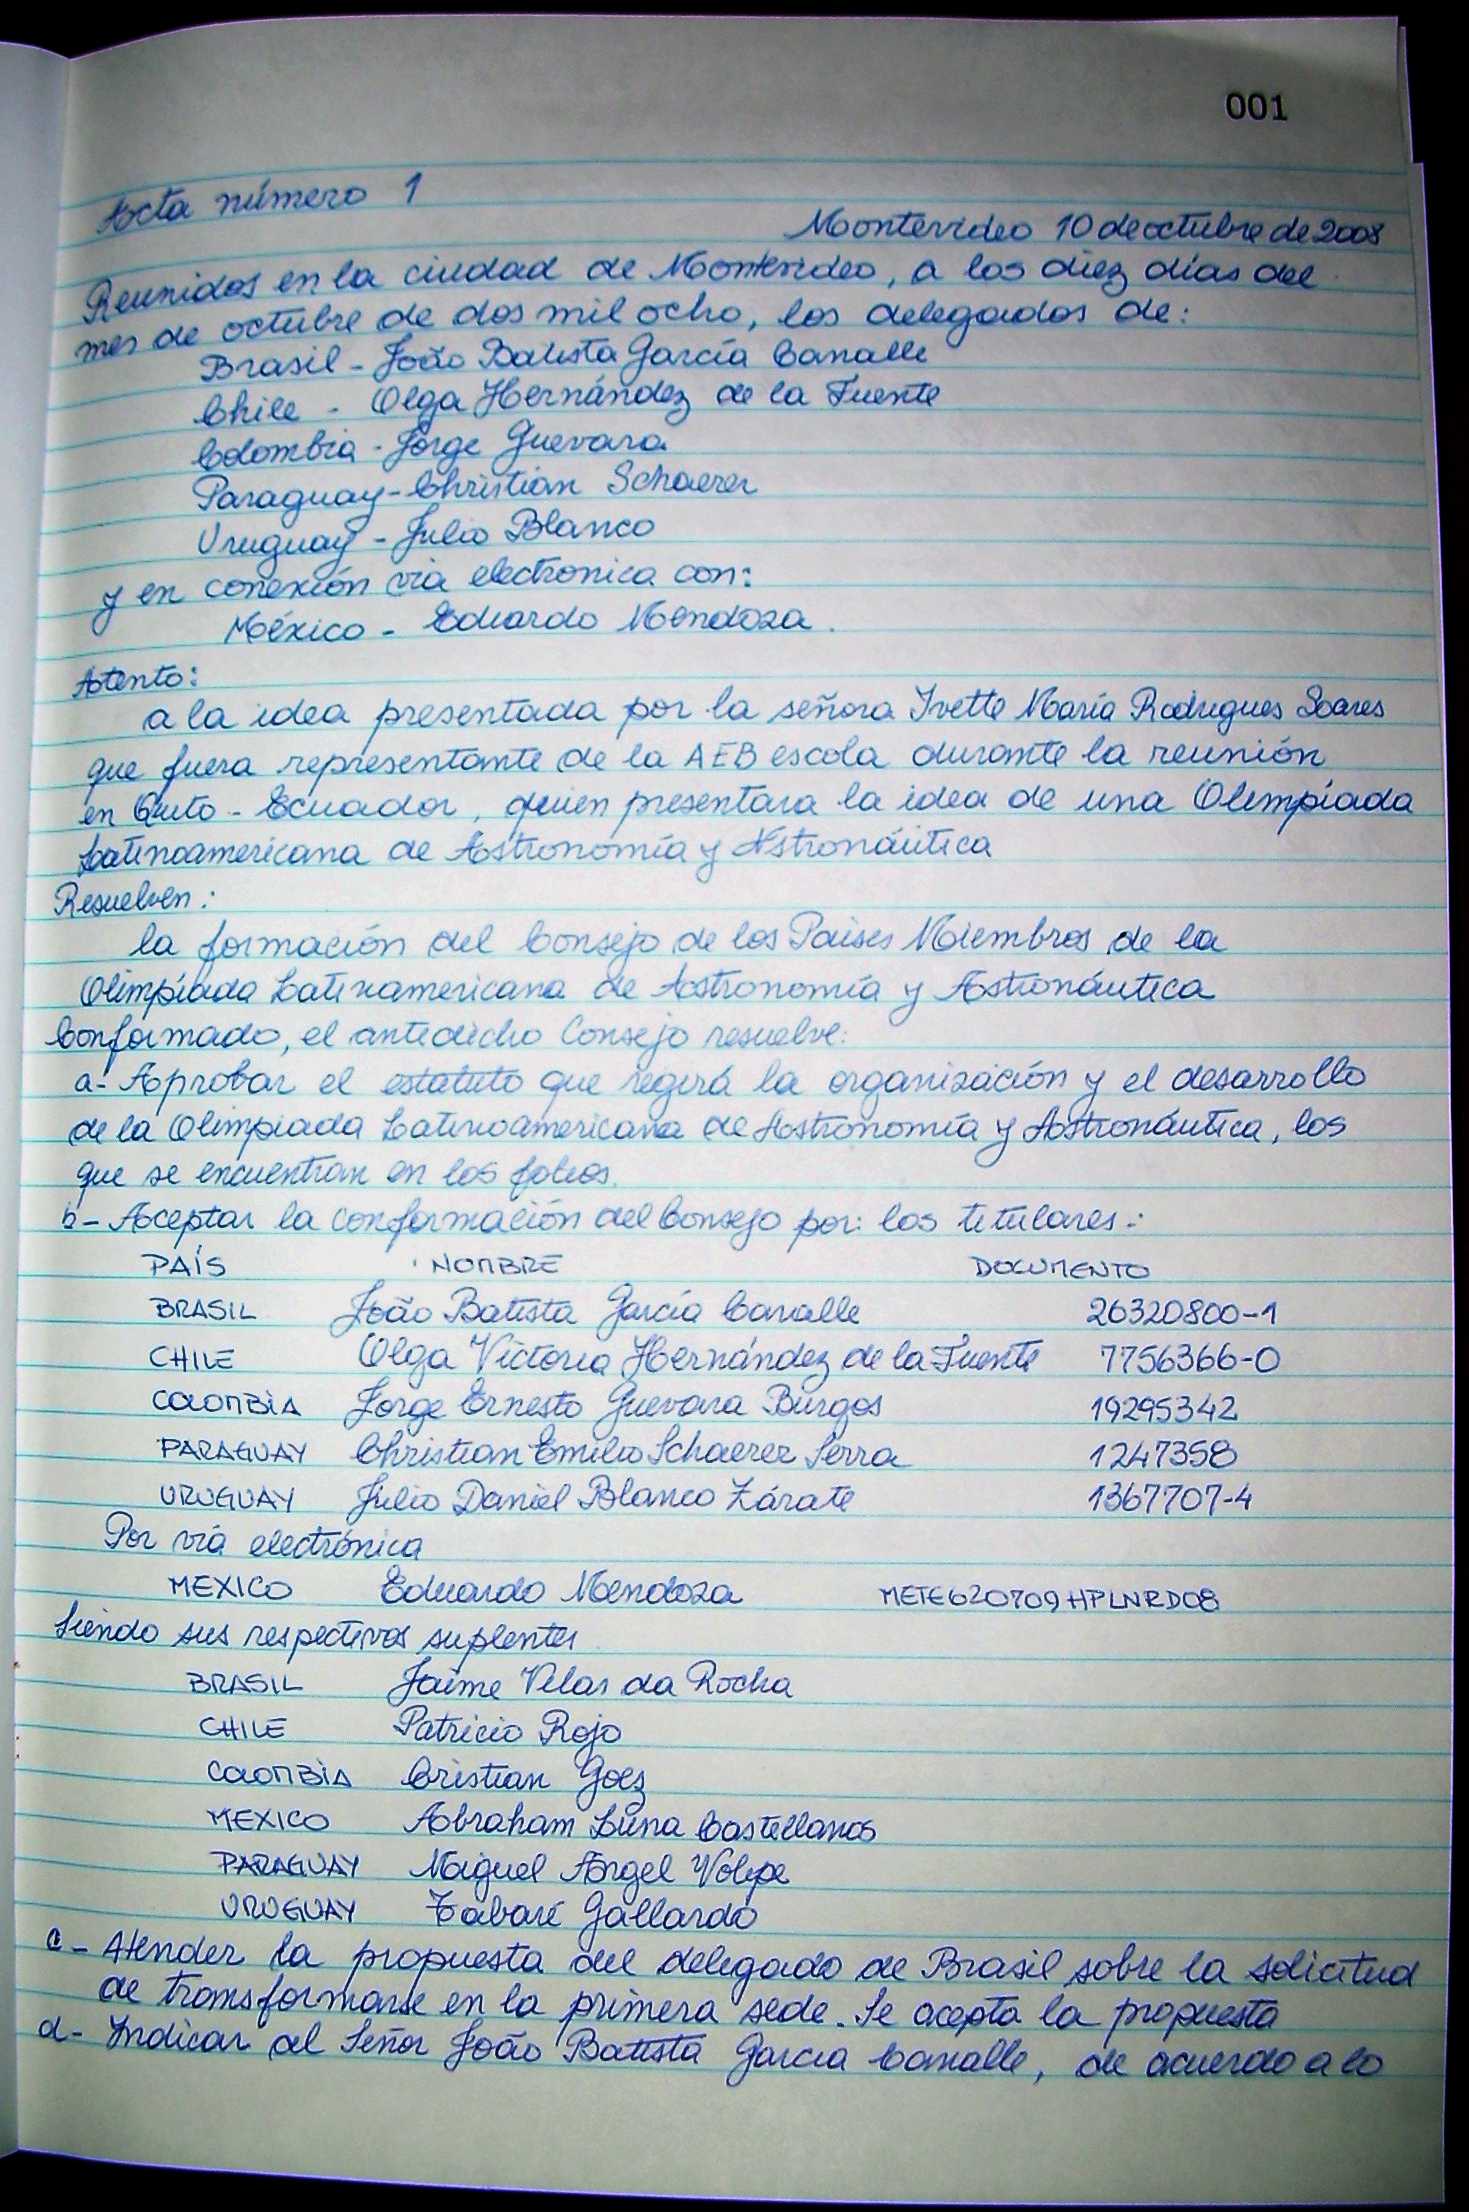 001
Acta número 1
Montevideo 10 de octubre de 2008
Reunidos en la ciudad de Montevideo, a los diez días del
mes de octubre de dos mil ocho, los delegados de:
Brasil - João Batista García Canalle
Chile - Olga Hernández de la Fuente
Colombia - Jorge Guevara
Paraguay - Christian Schaerer
Uruguay - Julio Blanco
y en conexión via electronica con:
México - Eduardo Mendoza.
Atento:
a la idea presentada por la señora Ivette María Rodrigues Soares
que fuera representante de la AEB escola durante la reunión
en Quito - Ecuador, quien presentara la idea de una Olimpíada
Latinoamericana de Astronomía y Astronáutica
Resuelven:
la formación del Consejo de los Paises Miembros de la
Olimpíada Latinamericana de Astronomía y Astronáutica
Conformado, el antedicho Consejo resuelve:
a- Aprobar el estatuto que regirá la organización y el desarrollo
de la Olimpiada Latinoamericana de Astronomía y Astronáutica, los
que se encuentran en los folios.
b- Aceptar la conformación del Consejo por: los titulares:
PAÍS NOMBRE DOCUMENTO
BRASIL João Batista García Canalle 26320800-1
CHILE Olga Victoria Hernández de la Fuente 7756366-0
COLOMBIA Jorge Ernesto Guevara Burgos 19295342
PARAGUAY Christian Emilio Schaerer Serra 1247358
URUGUAY Julio Daniel Blanco Zárate 1367707-4
Por vía electrónica
MEXICO Eduardo Mendoza METE620709HPLNRD08
Siendo sus respectivos suplentes
BRASIL Jaime Vilas da Rocha
CHILE Patricio Rojo
COLOMBIA Cristian Goez
MEXICO Abraham Luna Castellanos
PARAGUAY Miguel Ángel Volpe
URUGUAY Tabaré Gallardo
c- Atender la propuesta del delegado de Brasil sobre la solicitud
de transformarse en la primera sede. Se acepta la propuesta
d- Indicar al Señor João Batista Garcia Canalle, de acuerdo a lo